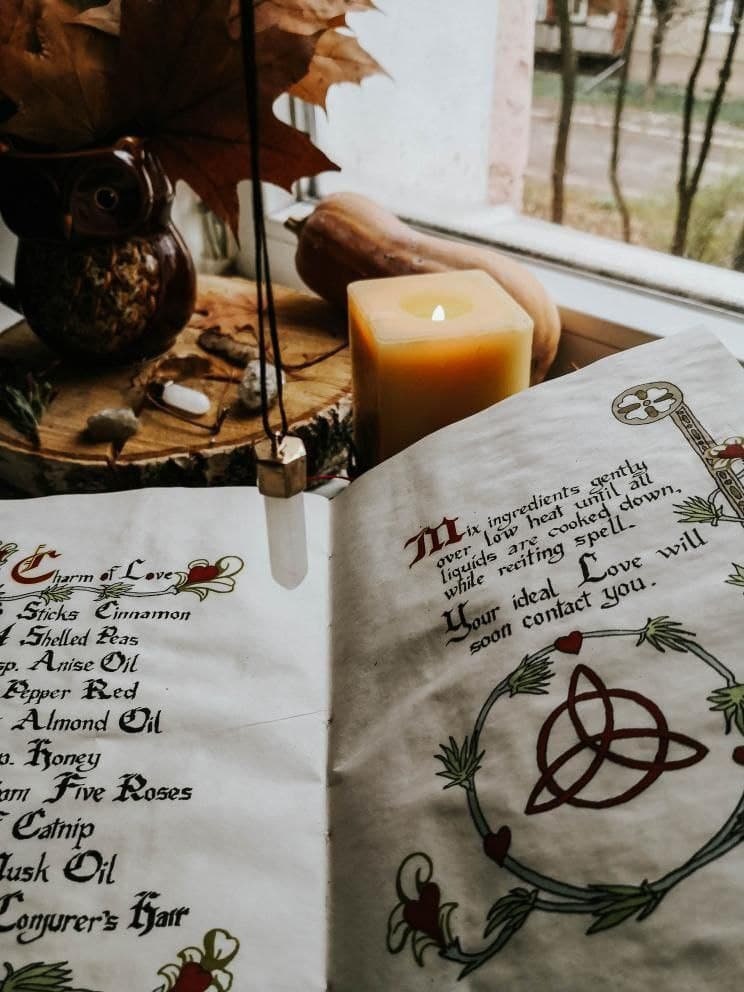 Charm of Love
Sticks Cinnamon
4 Shelled Peas
sp. Anise Oil
Pepper Red
Almond Oil
p. Honey
Five Roses
Catnip
Musk Oil
Conjurer's Hair
Mix ingredients gently
over low heat until all
liquids are cooked down,
while reciting spell.
Your ideal Love will
soon contact you.